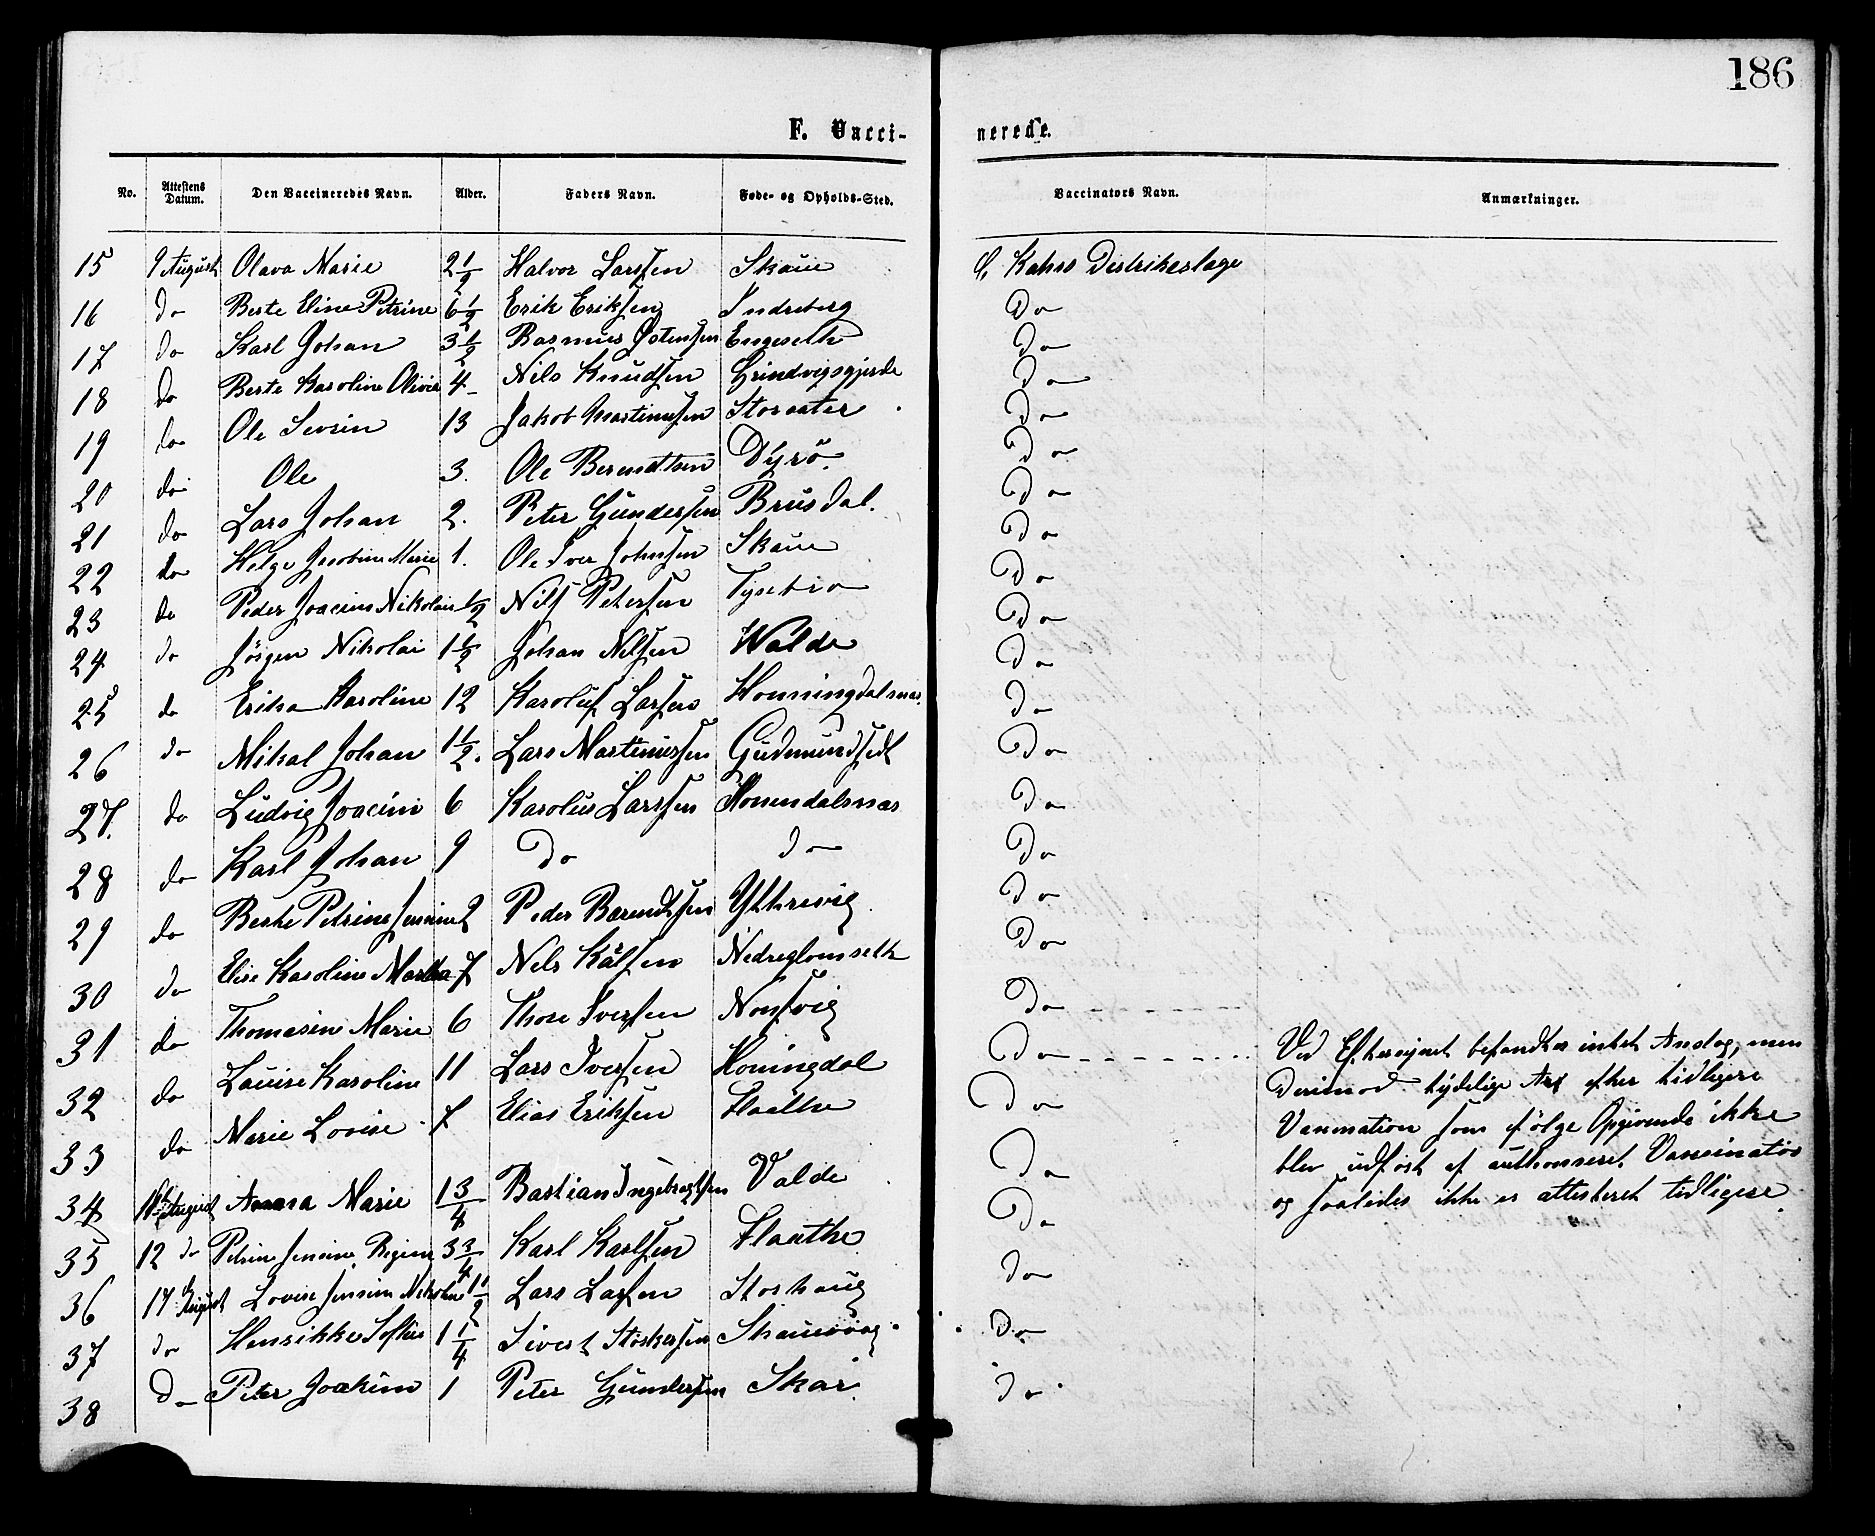 186
F. Vacci- nerede.
No. Attestens Datum. Den Vaccineredes Navn. Alder. Faders Navn. Føde- og Opholds-Sted. Vaccinators Navn. Anmærkninger.
15 9 August Olava Marie 2 1/2 Halvor Larssen Skaue Kahrs Distriktslæge
16 do Berte Eline Petrine 6 1/2 Erik Eriksen Indreberg Do
17 do Karl Johan 3 1/2 Rasmus Østensen Engeseth Do
18 do Berte Karoline Olivie 4 Nils Knudsen Grindvigsgjerde Do
19 do Ole Sevrin 13 Jakob Martinussen Storsæter Do
20 do Ole 3. Ole Berendtsen Dyrö Do
21 do Lars Johan 2. Peter Gundersen Brusdal. Do
22 do Helge Jacobine Marie 1. Ole Iver Johnsen Skaue Do
23 do Peder Joacim Nikolai 1/2 Nils Petersen Do
24 do Jörgen Nikolai 1 1/2 Johan Nilsen Walde Do
25 do Erika Karoline 12 Karoluf Larsen Honningdalsnæs Do
26 do Mikal Johan 1 1/2. Lars Martinussen Gudmundset Do
27. do Ludvig Joacim 6 Karolus Larssen Honendalsnæs Do
28 do Karl Johan 9 Do do Do
29 do Berte Petrine Jensine 2 Peder Barendtsen Yttrevig Do
30 do Elise Karoline Martha 7 Nels Kålsen Nedreglomseth Do
31 do Thomasine Marie 6 Thore Iversen Do
32 do Lauise Karoline 11 Lars Iversen Honingdal Do
33 do Marie Lovise 7 Elias Eriksen Flaathe Do
Ved Eftersynet befandtes intet Anslag, men
derimod tydelige Ar efter tidligere
Vaccination som ifølge Opgivende ikke
blev udført af authoriseret Vaccinatør
og saaledes ikke er attesteret tidligere.
34 August Anna Marie 1 3/4 Bastian Ingebrigtsen Valde Do
35 12 do Petrine Jensine Regine 3 3/4 Karl Karlsen Flaathe Do
36 17 August Lovise Jensine Nikoline 1 1/2 Lars Larsen Storhaug Do
37 do Henrikke Sofie 1 1/4 Sivert Störkersen Skauevaag Do
38 Do Peter Joakim 1 Peter Gundersen Skar. Do